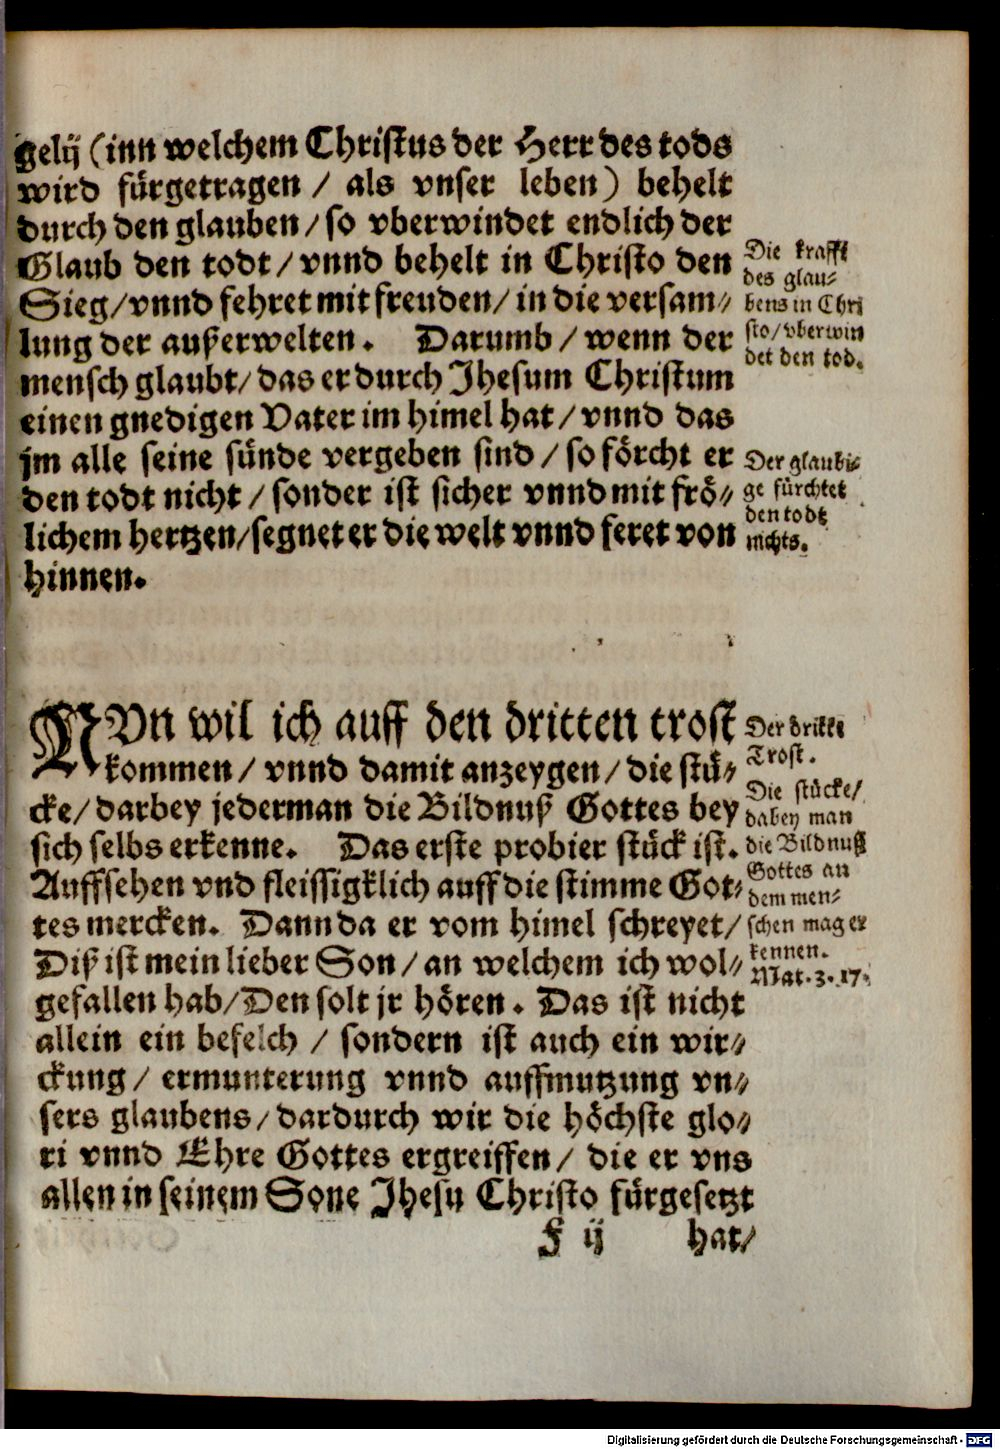 gelij (inn welchem Christus der Herr des tods
wird fürgetragen / als vnser leben) behelt
durch den glauben / so vberwindet endlich der
Glaub den todt / vnnd behelt in Christo den
Sieg / vnnd fehret mit freuden / in die versam⸗
lung der außerwelten. Darumb / wenn der
mensch glaubt / das er durch Jhesum Christum
einen gnedigen Vater im himel hat / vnnd das
jm alle seine sünde vergeben sind / so förcht er
den todt nicht / sonder ist sicher vnnd mit frö⸗
lichem hertzen / segnet er die welt vnnd feret von
hinnen.
Die krafft
des glau⸗
bens in Chri
sto / vberwin
det den tod.
Der glaubi⸗
ge fürchtet
den todt
nichts.
NVn wil ich auff den dritten trost
kommen / vnnd damit anzeygen / die stü⸗
cke / darbey jederman die Bildnuß Gottes bey
sich selbs erkenne. Das erste probier stück ist.
Auffsehen vnd fleissigklich auff die stimme Got⸗
tes mercken. Dann da er vom himel schreyet /
Diß ist mein lieber Son / an welchem ich wol⸗
gefallen hab / Den solt jr hören. Das ist nicht
allein ein befelch / sondern ist auch ein wir⸗
ckung / ermunterung vnnd auffmutzung vn⸗
sers glaubens / dardurch wir die höchste glo⸗
ri vnnd Ehre Gottes ergreiffen / die er vns
allen in seinem Sone Jhesu Christo fürgesetzt
Der dritte
Trost.
Die stücke /
dabey man
die Bildnuß
Gottes an
dem men⸗
schen mag er
kennen.
Mat. 3. 17.
F ij hat /
Digitalisierung gefördert durch die Deutsche Forschungsgemeinschaft - DFG